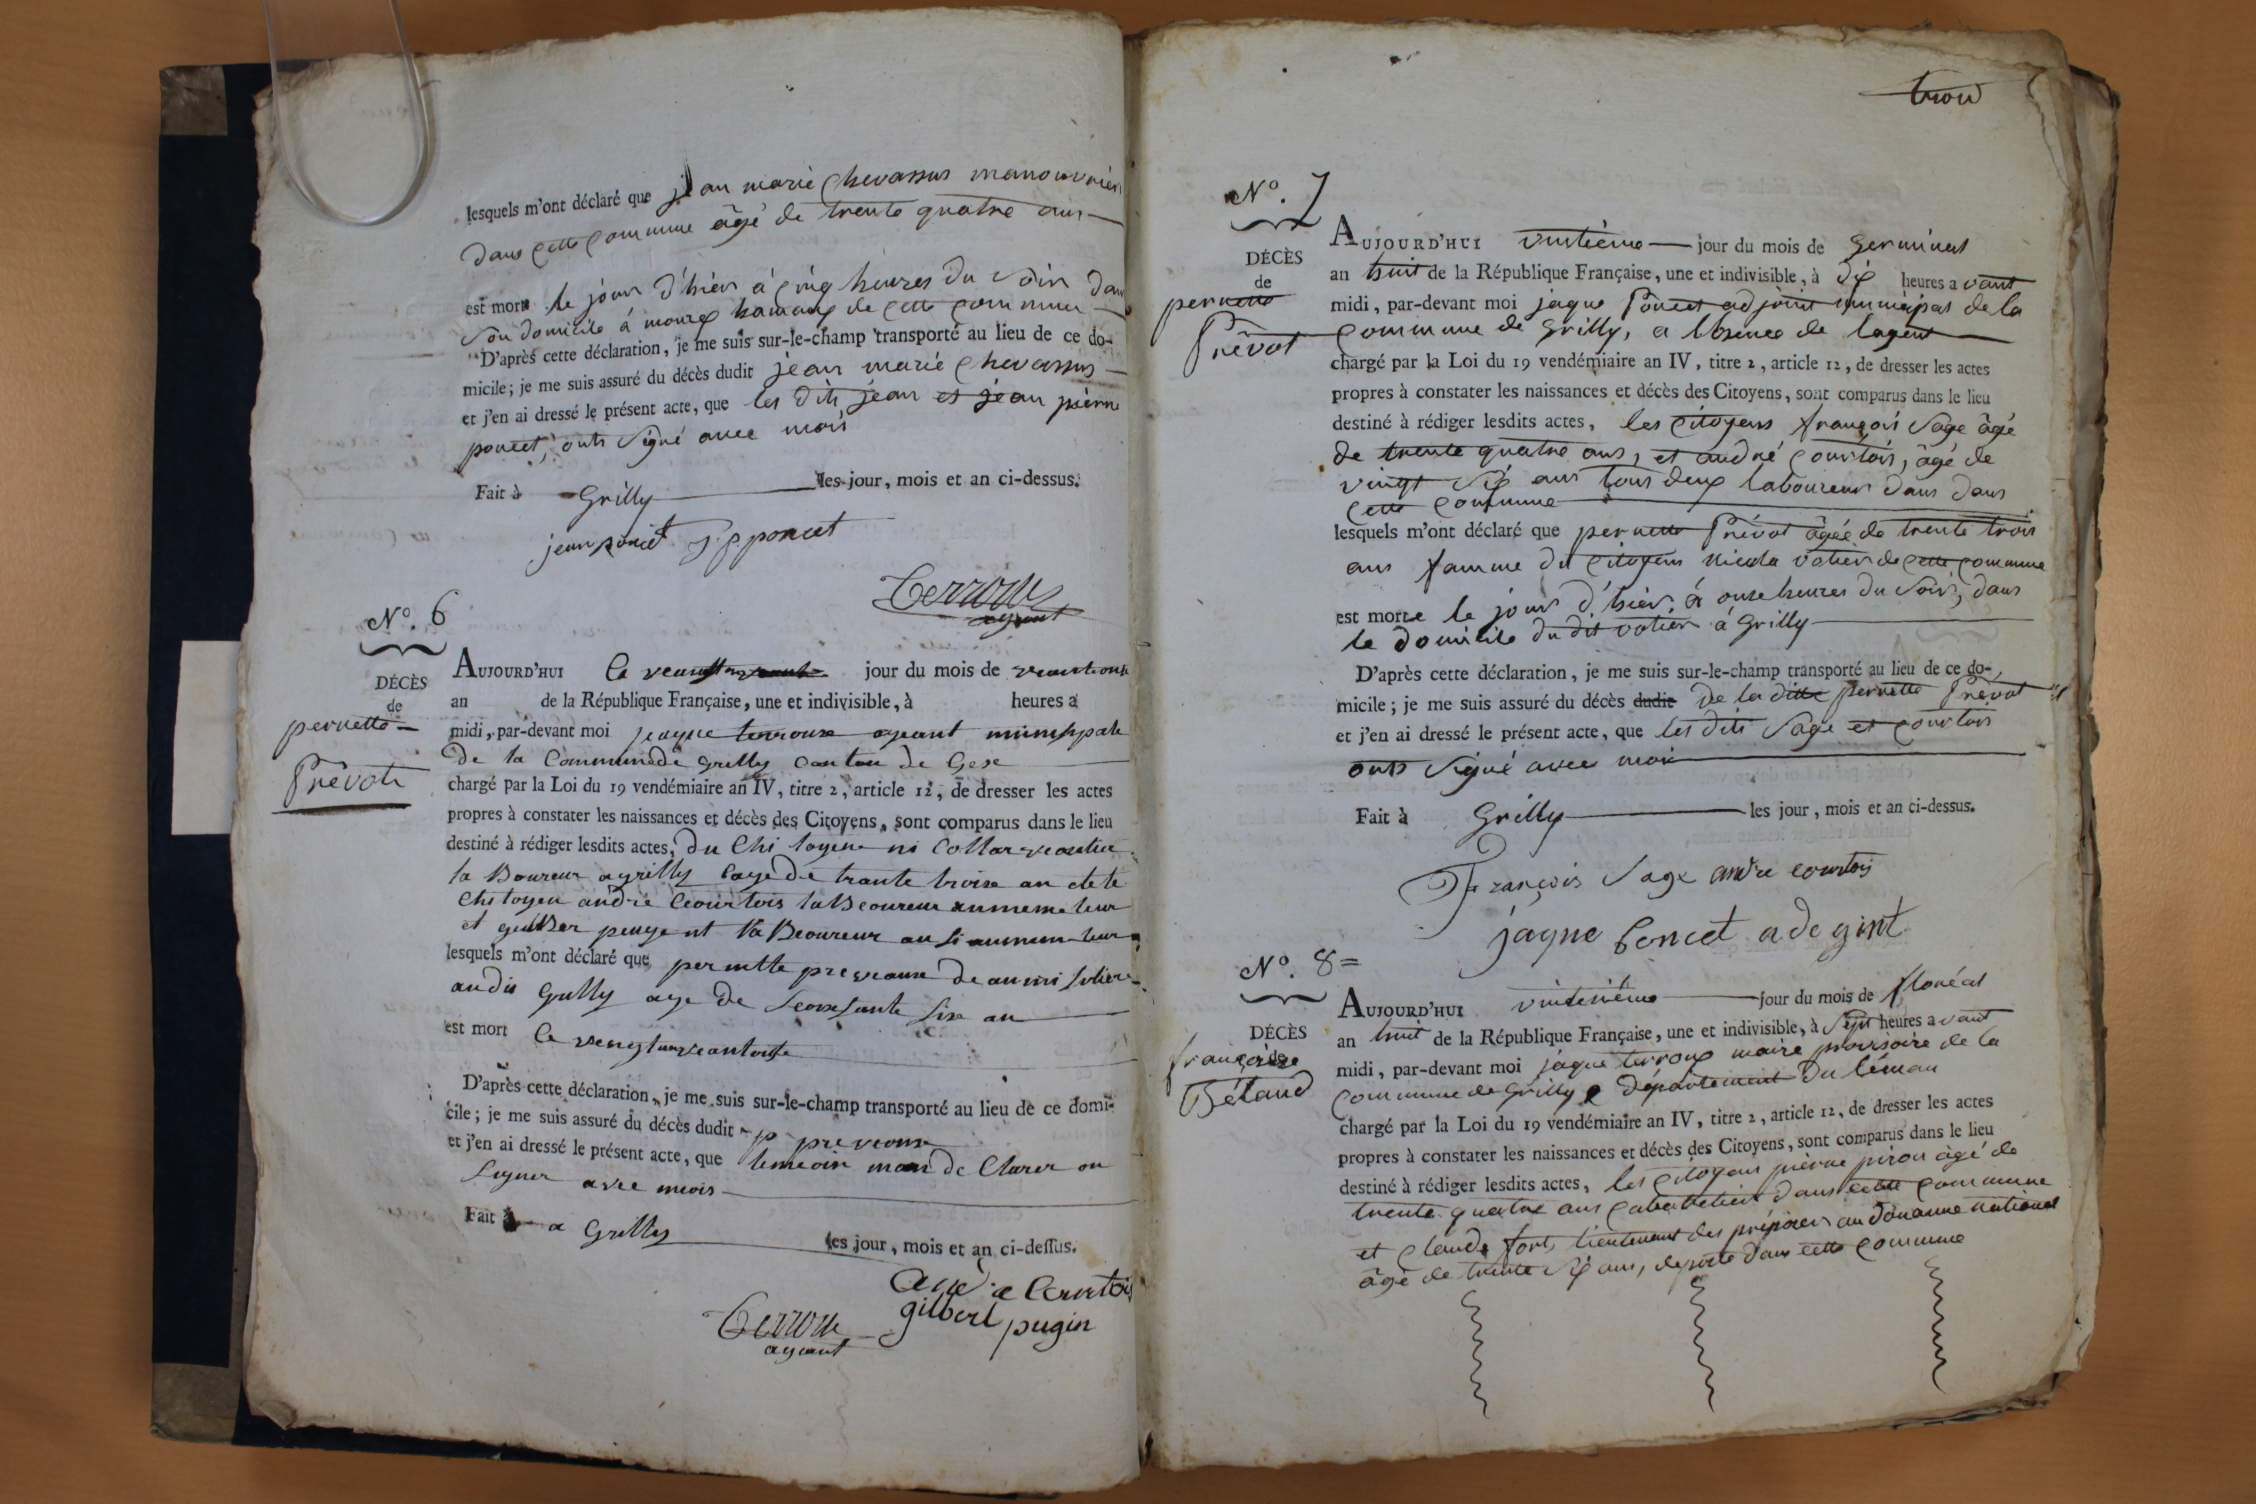 lesquels m'ont déclaré que jean marie chevassus manouvrier
dans cette commune âgé de trente quatre ans
est mort le jour d'hier à cinq heures du soir dans
son domicile à mourex hamaux de cette commune
D'après cette déclaration, je me suis sur-le-champ transporté au lieu de ce do-
micile; je me suis assuré du décès dudit jean marie chevassus
et j'en ai dressé le présent acte, que les dits jean et jean pierre
poncet, onts signé avec moi
Fait à Grilly les jour, mois et an ci-dessus.
jean poncet J p poncet
Terroux
agent
N°. 6
DÉCÈS
de
pernette
Prévot
AUJOURD'HUI le jour du mois de
an de la République Française, une et indivisible, à heures a
midi, par-devant moi jaque terroux agant munisipale
de la Commune de Grilly canton de Gex
chargé par la Loi du 19 vendémiaire an IV, titre 2, article 12, de dresser les actes
propres à constater les naissances et décès des Citoyens, sont comparus dans le lieu
destiné à rédiger lesdits actes, du Chitoyen ni collas
la Boureur a grilly age de trante troise an
chitoyen andre Courtois laBoureur
et
lesquels m'ont déclaré que pernette
audis Grilly age de six an
est mort le
D'après cette déclaration, je me suis sur-le-champ transporté au lieu de ce domi-
cile; je me suis assuré du décès dudit p
et j'en ai dressé le présent acte, que temoin mon de Clarer on
signer avec mois
Fait à a Grilly les jour, mois et an ci-dessus.
gilbert pugin
Terroux
agant
trois
N°. 7
DÉCÈS
de
pernette
Prévot
AUJOURD'HUI vintième jour du mois de Germinal
an huit de la République Française, une et indivisible, à dix heures a vant
midi, par-devant moi jaque Poncet adjoint municipal de la
commune de Grilly, a l'absence de lagent
chargé par la Loi du 19 vendémiaire an IV, titre 2, article 12, de dresser les actes
propres à constater les naissances et décès des Citoyens, sont comparus dans le lieu
destiné à rédiger lesdits actes, les citoyens françois Sage âgé
de trente quatre ans, et andré courtois, âgé de
vingt six ans tous deux laboureur dans dans
cette commune
lesquels m'ont déclaré que pernette Prévot âgée de trente trois
ans famme du citoyen nicola votier de cette commune
est morte le jour d'hier à onse heures du soir, dans
le domicile du dit votier à Grilly
D'après cette déclaration, je me suis sur-le-champ transporté au lieu de ce do-
micile; je me suis assuré du décès dudit de la ditte pernette Prévot
et j'en ai dressé le présent acte, que les dits Sage et courtois
onts signé avec moi
Fait à Grilly les jour, mois et an ci-dessus.
François Sage andre courtois
jaque Poncet adegint
N°. 8
DÉCÈS
de
françoise
Bétaud
AUJOURD'HUI jour du mois de floréal
an huit de la République Française, une et indivisible, à sept heures a vant
midi, par-devant moi jaque terroux maire provisoire de la
commune de Grilly département du léman
chargé par la Loi du 19 vendémiaire an IV, titre 2, article 12, de dresser les actes
propres à constater les naissances et décès des Citoyens, sont comparus dans le lieu
destiné à rédiger lesdits actes, les citoyens pierre piron âgé de
trente quatre ans cabaretier dans cette commune
et claude fort, lieutenant des préposés au douanne national
âgé de trente six ans, de poste dans cette commune